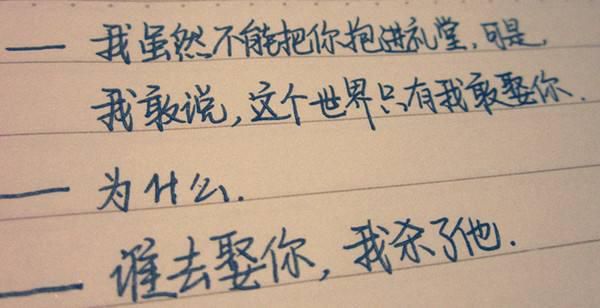 — 我虽然不能把你抱进礼堂,可是,
我敢说,这个世界只有我敢娶你.
— 为什么.
— 谁去娶你,我杀了他.